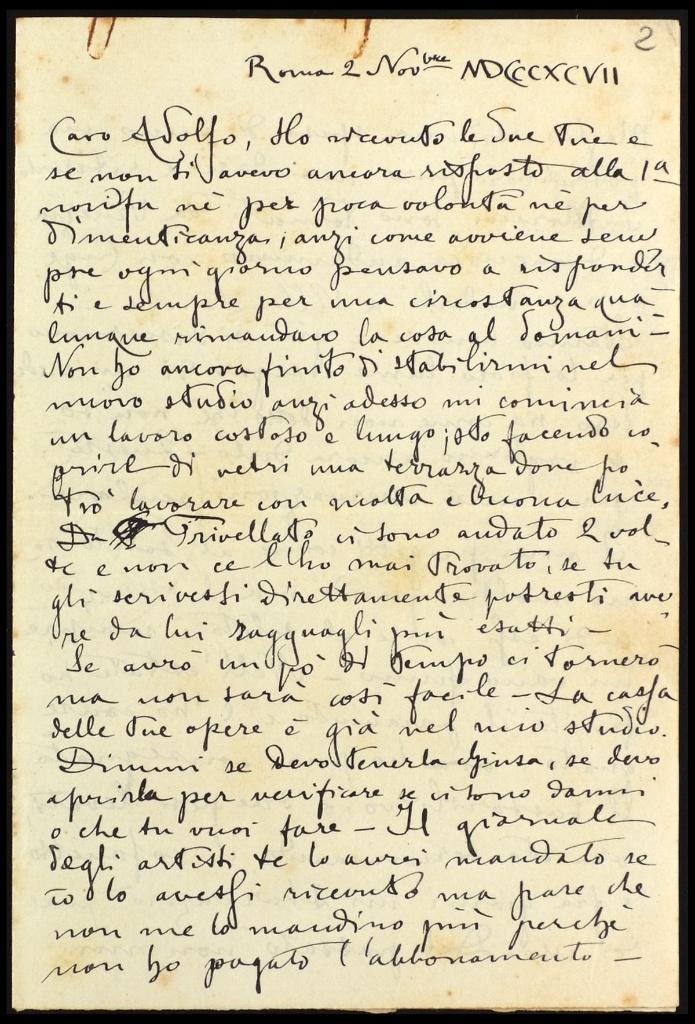 2
Roma 2 Novbre MDCCCXCVII
Caro Adolfo, Ho ricevuto le due tue e
se non ti avevo ancora risposto alla 1a
non fu nè per poca volontà nè per
dimenticanza, anzi come avviene sem
pre ogni giorno pensavo a risponder
ti e sempre per una circostanza qua-
lunque rimandavo la cosa al domani-
Non ho ancora finito di stabilirmi nel
nuovo studio anzi adesso mi comincia
un lavoro costoso e lungo; sto facendo co-
prire di vetri una terrazza dove po
trò lavorare con molta e buona luce.
Da Trivellato ci sono andato 2 vol-
te e non ce l'ho mai trovato, se tu
gli scrivessi direttamente potresti ave-
re da lui ragguagli più esatti -
Se avrò un pò di tempo ci tornerò
ma non sarà così facile - La cassa
delle tue opere è già nel mio studio.
Dimmi se devo tenerla chiusa, se devo
aprirla per verificare se ci sono danni
o che tu vuoi fare - Il giornale
degli artisti te lo avrei mandato se
io lo avessi ricevuto ma pare che
non me lo mandino più perchè
non ho pagato l'abbonamento -